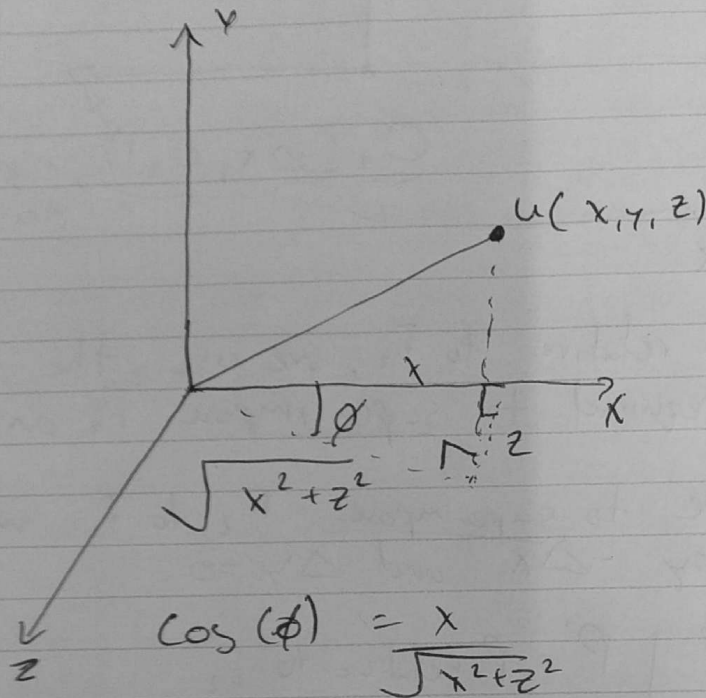 Y
u(x,y,z)
x
X
φ
z
√x²+z²
z
cos(φ) = x/√x²+z²